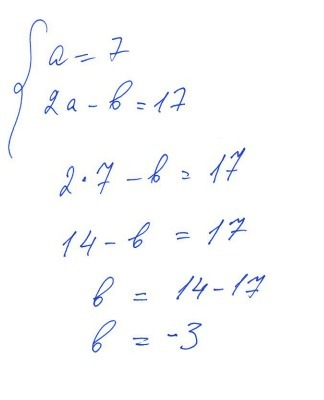 a = 7
2a - b = 17
2·7 - b = 17
14 - b = 17
b = 14 - 17
b = -3